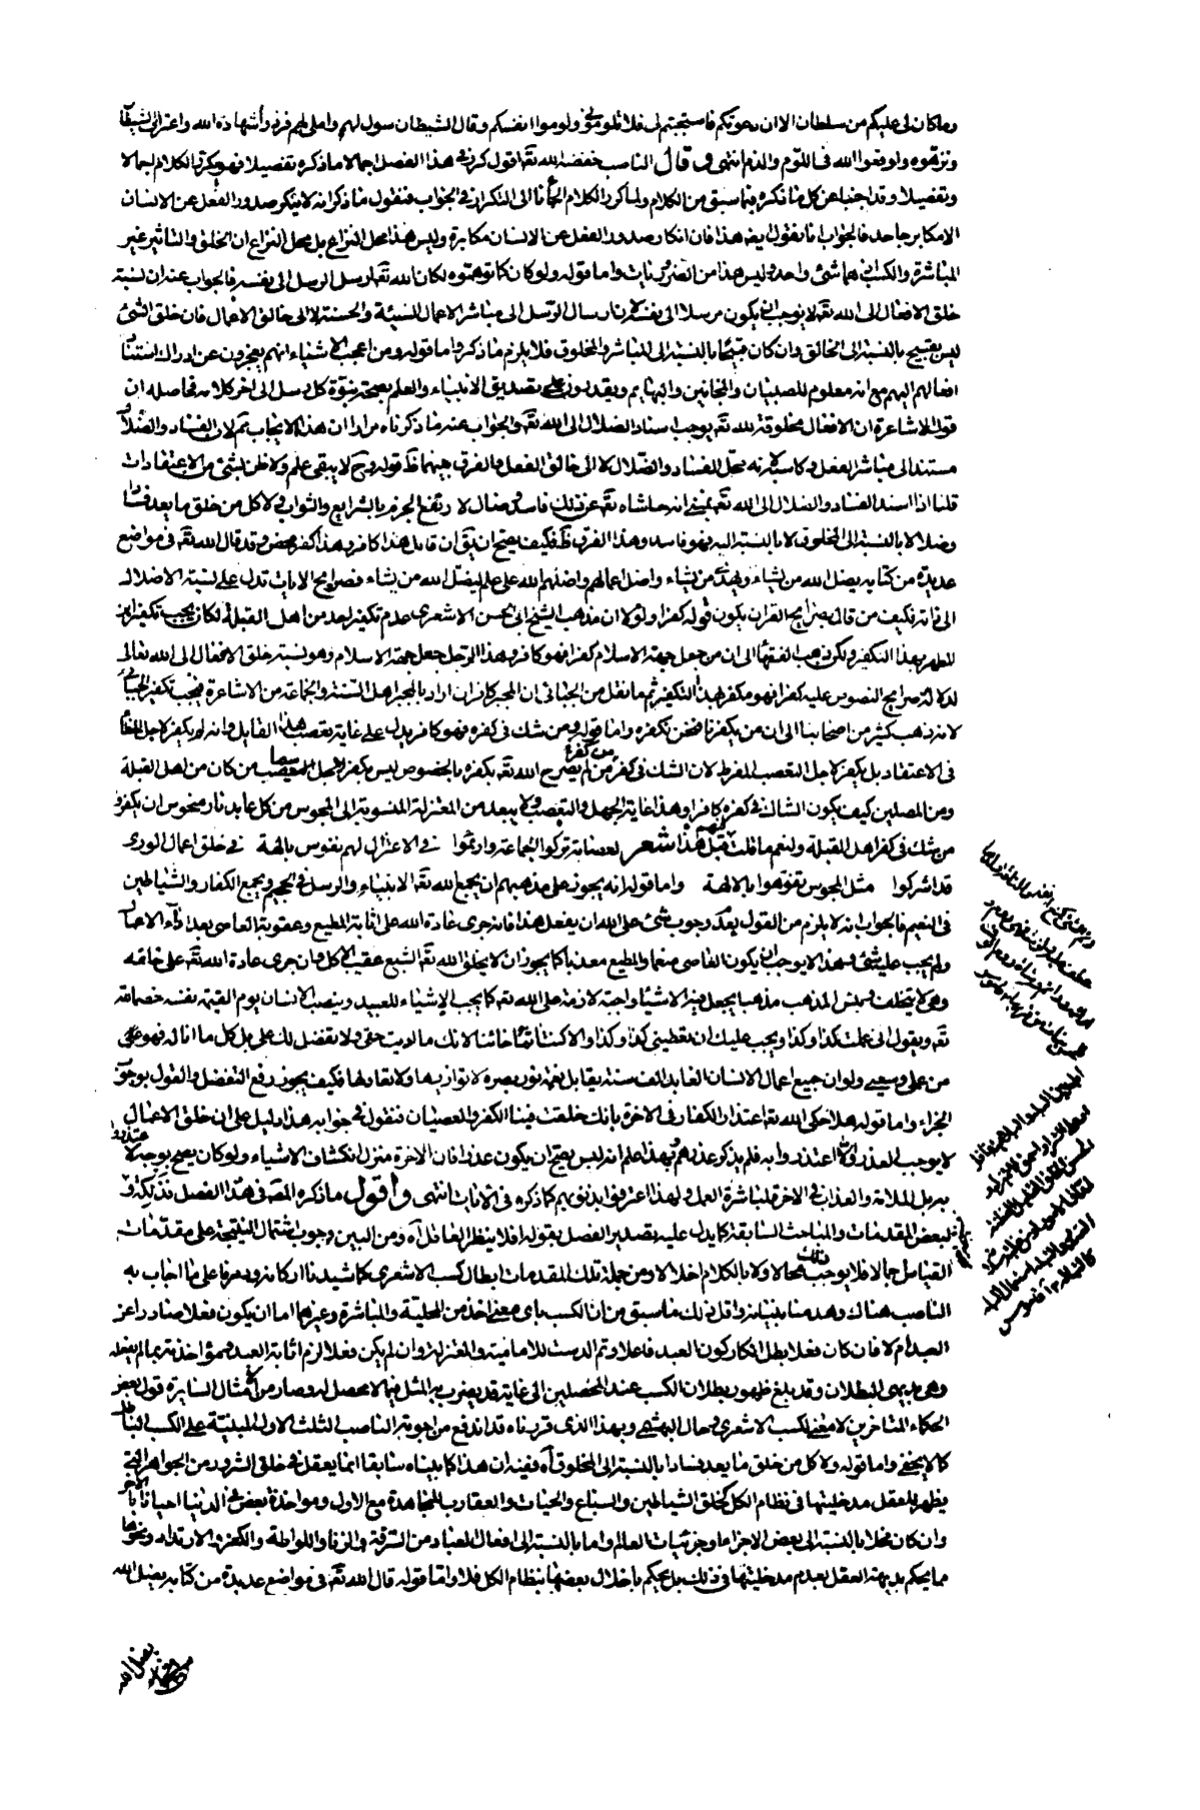 وما كان لى عليكم من سلطان الا ان دعوتكم فاستجبتم لى فلا تلومونى ولوموا انفسكم وقال الشيطان سول لهم واملى لهم فردوا شهادة الله واعتراف الشيطان
ونزهوه واوقعوا الله فى اللوم والذم انتهى وقال الناصب خفضه الله تعه اقول كرر فى هذا الفصل اجمالا ما ذكره تفصيلا فهو يكرر الكلام اجمالا
وتفصيلا وقد اجبنا عن كل ما ذكره فيما سبق من الكلام ولما كرر الكلام الجأنا الى التكرار فى الجواب فنقول ما ذكر انه لا ينكر صدور الفعل عن الانسان
الا مكابر جاحد فالجواب انا نقول ايضه هذا فان انكار صدور الفعل عن الانسان مكابرة وليس هذا محل النزاع بل محل النزاع ان الخلق والتأثير غير
المباشرة والكسب او هما شئ واحد وليس هذا من الضروريات واما قوله ولو كان كما توهموه لكان الله تعه ارسل الرسل الى نفسه فالجواب عنه ان نسبة
خلق الافعال الى الله تعه لا يوجب ان يكون مرسلا الى نفسه لان ارسال الرسل الى مباشر الاعمال السيئة والحسنة لا الى خالق الاعمال فان خلق الشئ
ليس بقبيح بالنسبة الى الخالق وان كان قبيحا بالنسبة الى المباشر والمخلوق فلا يلزم ما ذكر واما قوله ومن اعجب الاشياء انهم يعجزون عن ادراك استناد
افعالهم اليهم مع انه معلوم للصبيان والمجانين والبهائم ويقدرون على تصديق الانبياء والعلم بصحة نبوة كل مرسل الى اخر كلامه فحاصله ان
قول الاشاعرة ان الافعال مخلوقة لله تعه يوجب اسناد الضلال الى الله تعه والجواب عنه ما ذكرناه مرارا ان هذا الايجاب تم لان الفساد والضلال
مستند الى مباشر الفعل وكاسبه لانه محل للفساد والضلال لا الى خالق الفعل والفرق بينهما ظ قوله وح لا يبقى علم ولا ظن بشئ من الاعتقادات
قلنا اذا اسند الفساد والضلال الى الله تعه بمعنى انه حاشاه تعه عن ذلك فاسد وضال لا رتفع الجزم بالشرايع والثواب ولا كل من خلق ما يعد فسادا
وضلالا بالنسبة الى المخلوق لا بالنسبة اليه فهو فاسد وهذا الفرق ظ فكيف يصح ان يق ان قائل هذا كافر وهذا كفر محض وقد قال الله تعه فى مواضع
عديدة من كتابه يضل الله من يشاء ويهدى من يشاء واضل اعمالهم واضلهم الله على علم ليضل الله من يشاء فصرايح الايات تدل على نسبة الاضلال
الى ذاته فكيف من قال بصرايح القران يكون قوله كفرا ولولا ان مذهب الشيخ ابى الحسن الاشعرى عدم تكفير احد من اهل القبلة لكان يجب تكفير ابن
المطهر بهذا التكفير ولكن ذهب الفقها الى ان من جعل جهة الاسلام كفرا فهو كافر وهذا الرجل جعل جهة الاسلام وهو نسبة خلق الافعال الى الله تعالى
لدلالة صرايح النصوص عليه كفرا فهو مكفر بهذا التكفير ثم ما نقل من الجبائى ان المجبر كافر ان اراد بالمجبر اهل السنة والجماعة من الاشاعرة فيجب تكفير الجبائى
لانه ذهب كثير من اصحابنا الى ان من يكفرنا فنحن نكفره واما قوله ومن شك فى كفره فهو كافر يدل على غاية تعصب هذا القايل فانه لم يكفر لاجل الخطأ
فى الاعتقاد بل يكفر لاجل التعصب المفرط لان الشك فى كفر من لم يصرح الله تعه بكفره بالخصوص ليس بكفر من كفره سيما من كان من اهل القبلة
ومن المصلين كيف يكون الشاك فى كفره كافرا وهذا غاية الجهل والتعصب ولا يبعد من المعتزلة المنسوبة الى المجوس من كل عابد نار منحوس ان يكفروا
من شك فى كفر اهل القبلة ولنعم ما قلت قبل هذا شعر لعصابة تركوا الجماعة وارتموا فى الاعتزال لهم نفوس بالهة فى خلق اعمال الورى
قد اشركوا مثل المجوس تفوهوا بالالهة واما قوله انه يجوز على مذهبهم ان يجمع الله تعه الانبياء والرسل فى الجحيم ويجمع الكفار والشياطين
فى النعيم فالجواب انه لا يلزم من القول بعدم وجوب شئ على الله ان يفعل هذا فانه جرى عادة الله على اثابة المطيع وعقوبة العاصى
ولم يجب عليه شئ وهذا لا يوجب ان يكون العاصى منعما والمطيع معذبا كما يجوز ان لا يخلق الله تعه الشبع عقيب الاكل وان جرى عادة الله تعه على خلقه
وهو لا يتخلف وبئس المذهب مذهبا يجعل فيه الاشياء واجبة لازمة على الله تعه كما يجب الاشياء للعبيد وينصب الانسان يوم القيمة نفسه خصما لله
تعه ويقول انى عملت كذا وكذا وكذا ويجب عليك ان تعطينى كذا وكذا والا كنت خائنا لانك ما اديت حقى ولا تفضل لك على بل كل ما انا له فهو
من عملى وسعيى ولو ان جميع اعمال الانسان العابد الف سنة يقابل بنعمة نور بصره لا توازيها ولا تعادلها فكيف يجوز رفع التفضل والقول بوجوب
الجزاء واما قوله هلا حكى الله تعه اعتذار الكفار فى الاخرة بانك خلقت فينا الكفر والعصيان فنقول فى جوابه هذا دليل على ان خلق الاعمال
لا يوجب العذر والا لاعتذروا به فلم يذكر عذرهم بهذا علم انه ليس يصح ان يكون عذرا فان الاخرة منزل انكشاف الاشياء ولو كان يصح بوجه لاعتذروا
به بل الملامة والعذاب فى الاخرة لمباشرة العمل ولهذا اعترفوا بذنوبهم كما ذكره فى الايات انتهى واقول ما ذكره المصه فى هذا الفصل تذكرة
لبعض المقدمات والمباحث السابقة كما يدل عليه تصدير الفصل بقوله افلا ينظر العاقل آه ومن البين وجوب اشتمال النتيجة على مقدمات
القياس اجمالا فلا يوجب ذلك محالا ولا بالكلام اخلالا ومن جملة تلك المقدمات ابطال كسب الاشعرى كما شيدنا اركانه ويعرفا على ما اجاب به
الناصب هناك وهدمنا بنيانه واقل ذلك ما سبق من ان الكسب باى معنى اخذ من المحلية والمباشرة وغيرهما اما ان يكون فعلا صادرا عن
العبد ام لا فان كان فعلا بطل انكار كون العبد فاعلا وتم الدست للامامية والمعتزلة وان لم يكن فعلا لزم اثابة العبد ومؤاخذته بما لم يفعله
وهو بديهى البطلان وقد بلغ ظهور بطلان الكسب عند المحصلين الى غاية قد يضرب به المثل فيما لا محصل له وصار من الامثال السايرة قول بعض
الحكماء المتاخرين لا معنى لكسب الاشعرى وحال البهشمى وبهذا الذى قررناه قد اندفع من اجوبة الناصب الثلث الاول المبنية على الكسب الباطل
كما لا يخفى واما قوله ولا كل من خلق ما يعد فسادا بالنسبة الى المخلوق آه ففيه ان هذا كما بيناه سابقا انما يعقل فى خلق الشرور من الجواهر التى
يظهر للعقل مدخليتها فى نظام الكل كخلق الشياطين والسباع والحيات والعقارب للمجاهدة مع الاول ومؤاخذة بعض فى الدنيا احيانا بالاخر
وان كان مخلا بالنسبة الى بعض الاجزاء وجزئيات العالم واما بالنسبة الى افعال العباد من السرقة والزنا واللواطة والكفر والارتداد ونحوها
مما يحكم بديهة العقل بعدم مدخليتها فى ذلك بل يحكم باخلال بعضها بنظام الكل فلا واما قوله قال الله تعه فى مواضع عديدة من كتابه يضل الله